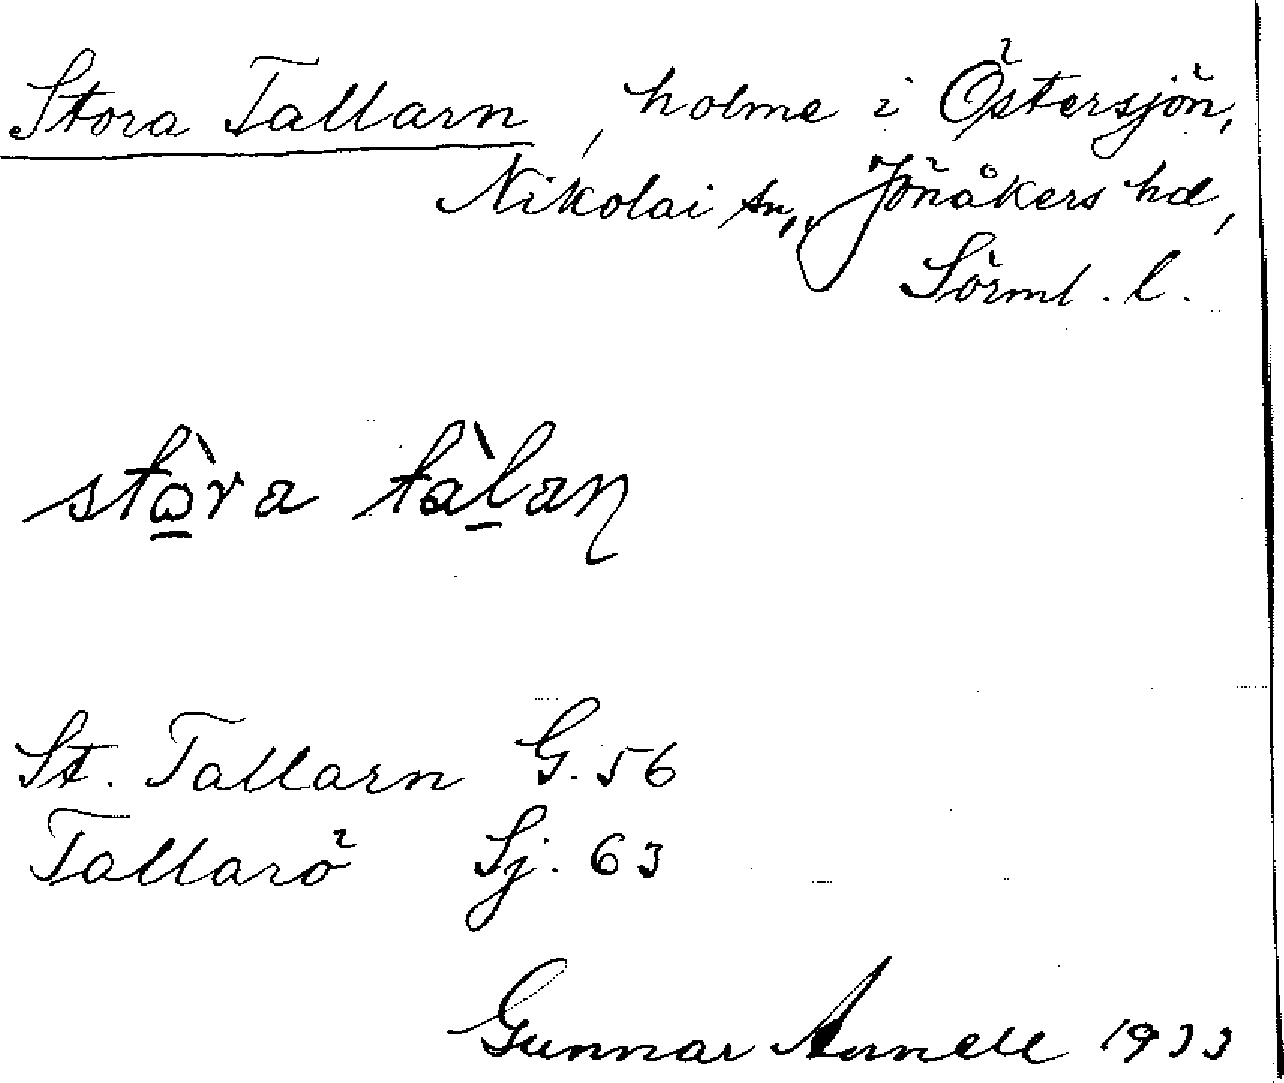 Stora Tallarn, holme i Östersjön,
Nikolai sn, Jönåkers hd,
Sörml. l.
stὼ̲ra tàl̲aɳ
St. Tallarn G. 56
Tallarö Sj. 63
Gunnar Arnell 1933